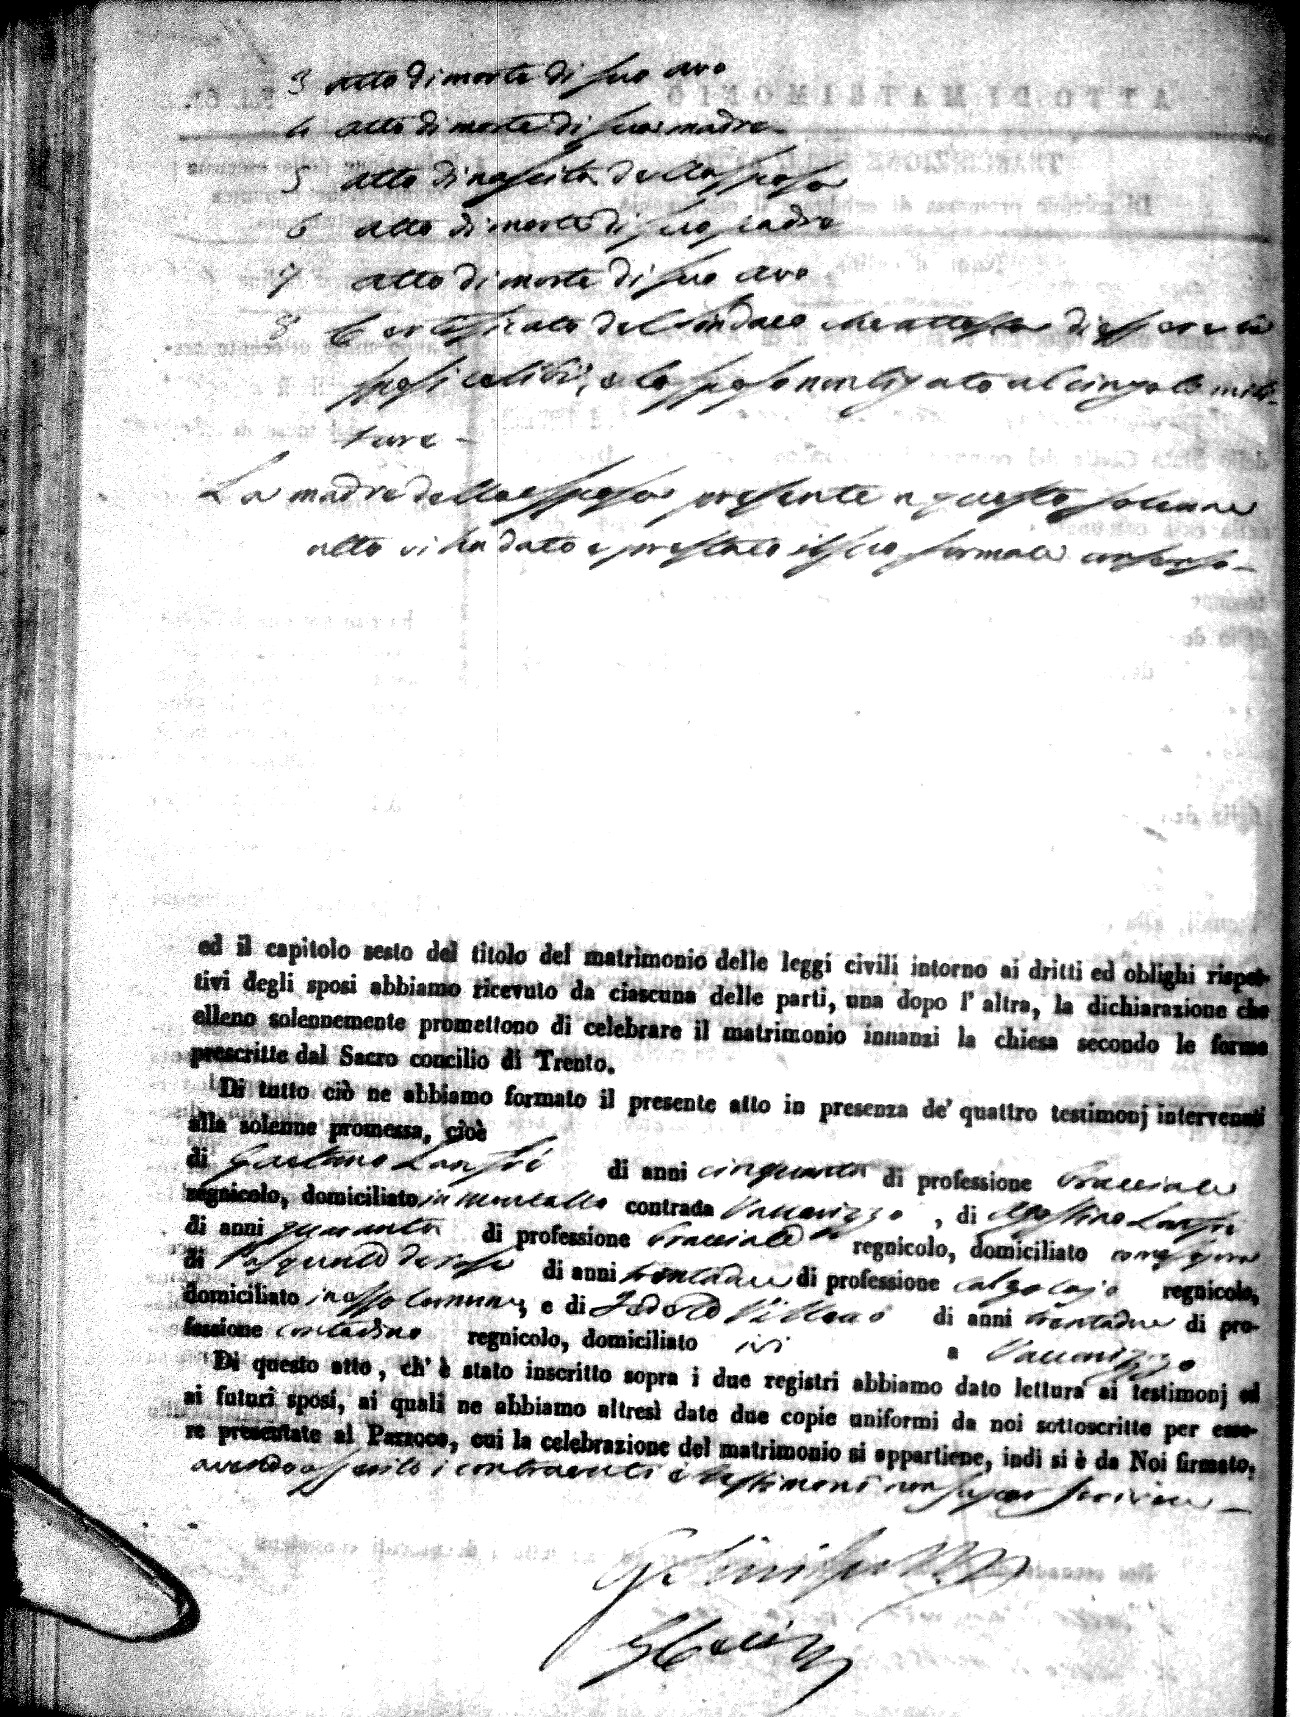 3 atto di morte di suo avo
4 atto di morte di sua madre
5 atto di nascita della sposa
6 atto di morte di suo padre
7 atto di morte di suo avo
8 Certificato del Sindaco che attesta di essere i
sposi celibi, e lo sposo non ligato al cingolo mili-
tare -
La madre della sposa presente a questo solenne
atto vi ha dato e prestato il suo formale consenso -
ed il capitolo sesto del titolo del matrimonio delle leggi civili intorno ai dritti ed oblighi rispet-
tivi degli sposi abbiamo ricevuto da ciascuna delle parti, una dopo l' altra, la dichiarazione che
elleno solennemente promettono di celebrare il matrimonio innanzi la chiesa secondo le forme
prescritte dal Sacro concilio di Trento.
Di tutto ciò ne abbiamo formato il presente atto in presenza de' quattro testimonj intervenuti
alla solenne promessa, cioè
di Gaetano di anni cinquanta di professione bracciale
regnicolo, domiciliato in contrada Vaccarizzo, di Agostino
di anni quaranta di professione bracciale regnicolo, domiciliato come sopra
di Pasquale de Rose di anni trentadue di professione calzolajo regnicolo,
domiciliato in esso Comune, e di di anni trentadue di pro-
fessione contadino regnicolo, domiciliato ivi a Vaccarizzo
Di questo atto, ch' è stato inscritto sopra i due registri abbiamo dato lettura ai testimonj ed
ai futuri sposi, ai quali ne abbiamo altresì date due copie uniformi da noi sottoscritte per esse-
re presentate al Parroco, cui la celebrazione del matrimonio si appartiene, indi si è da Noi firmato,
avendo asserito i contraenti e testimoni non saper scrivere -